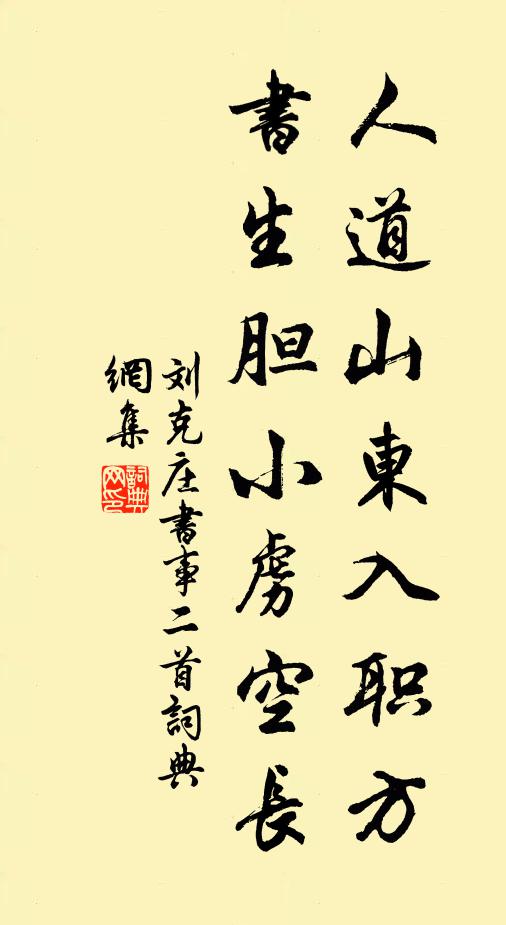 人道山東入职方
書生胆小虏空長
刘克庄書事二首詞典
網集
詞典
网印